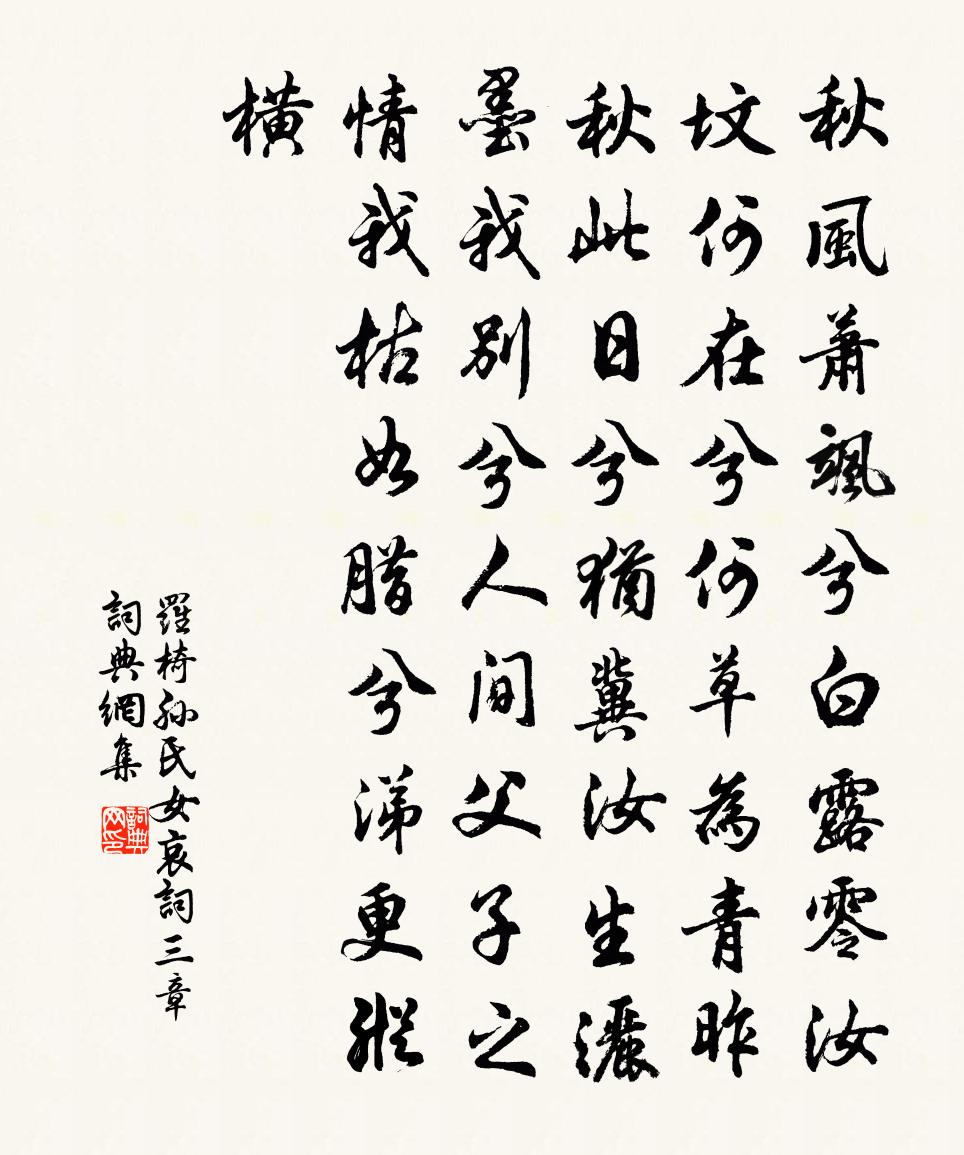 秋風蕭颯兮白露零汝
坟何在兮何草為青昨
秋此日兮猶冀汝生灑
墨我別兮人間父子之
情我枯如腊兮涕更縱
橫
羅椅孫氏女哀詞三章
詞典網集
詞典网印